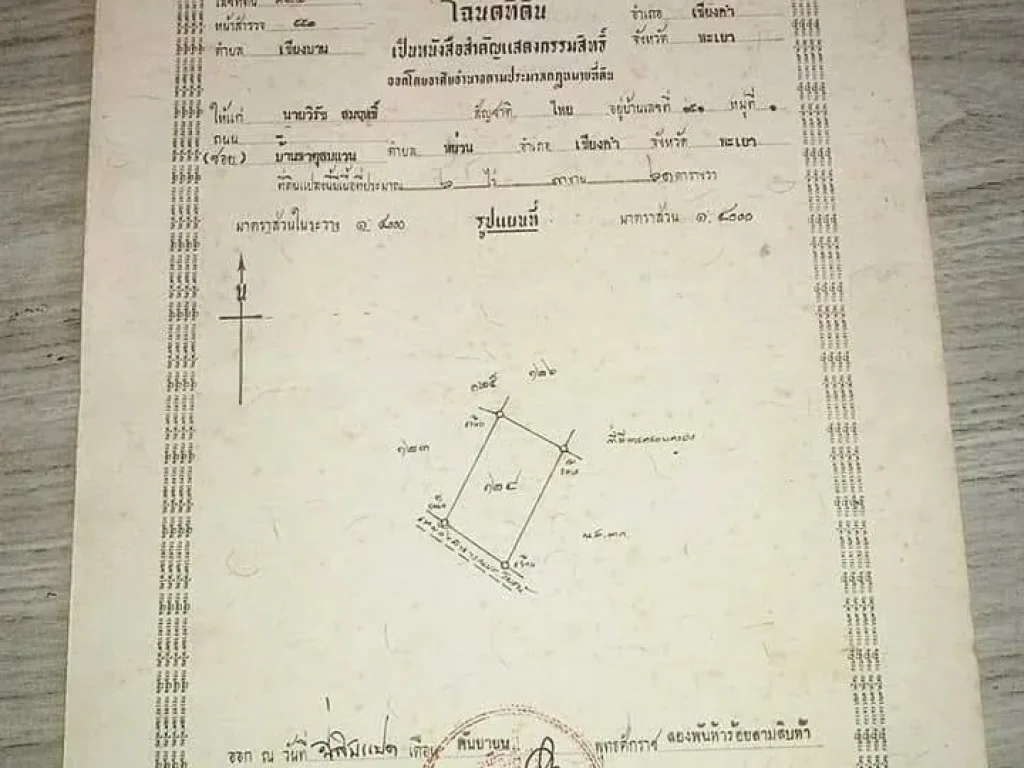 โฉนดที่ดิน
อำเภอ เชียงคำ
หน้าสำรวจ ๕๕๑
ตำบล เชียงบาน
เป็นหนังสือสำคัญแสดงกรรมสิทธิ์
จังหวัด พะเยา
ออกโดยอาศัยอำนาจตามประมวลกฎหมายที่ดิน
ให้แก่ นายวิรัช สมฤทธิ์ สัญชาติ ไทย อยู่บ้านเลขที่ ๑๕๑ หมู่ที่ ๑
ถนน
(ซอย) บ้านธาตุสบแวน ตำบล หย่วน อำเภอ เชียงคำ จังหวัด พะเยา
ที่ดินแปลงนี้มีเนื้อที่ประมาณ ๖ ไร่ งาน ๖๑ ตารางวา
มาตราส่วนในระวาง ๑:๔๐๐๐
รูปแผนที่
มาตราส่วน ๑:๔๐๐๐
น
๑๒๕
๑๒๖
๑๒๓
๑๒๔
น.ส.๓ก.
ออก ณ วันที่ ยี่สิบแปด เดือน กันยายน พุทธศักราช สองพันห้าร้อยสามสิบห้า